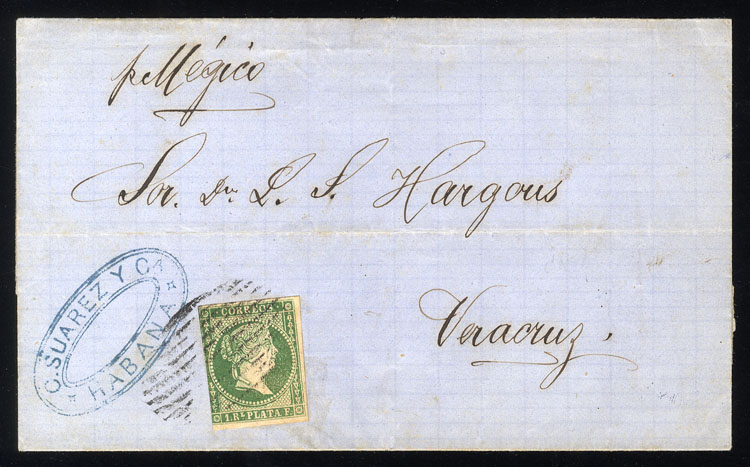 p. Mégico
Sor. Dn. L. S. Hargous
Veracruz,
C. SUAREZ Y CA.
HABANA
CORREOS
1. RL. PLATA F.